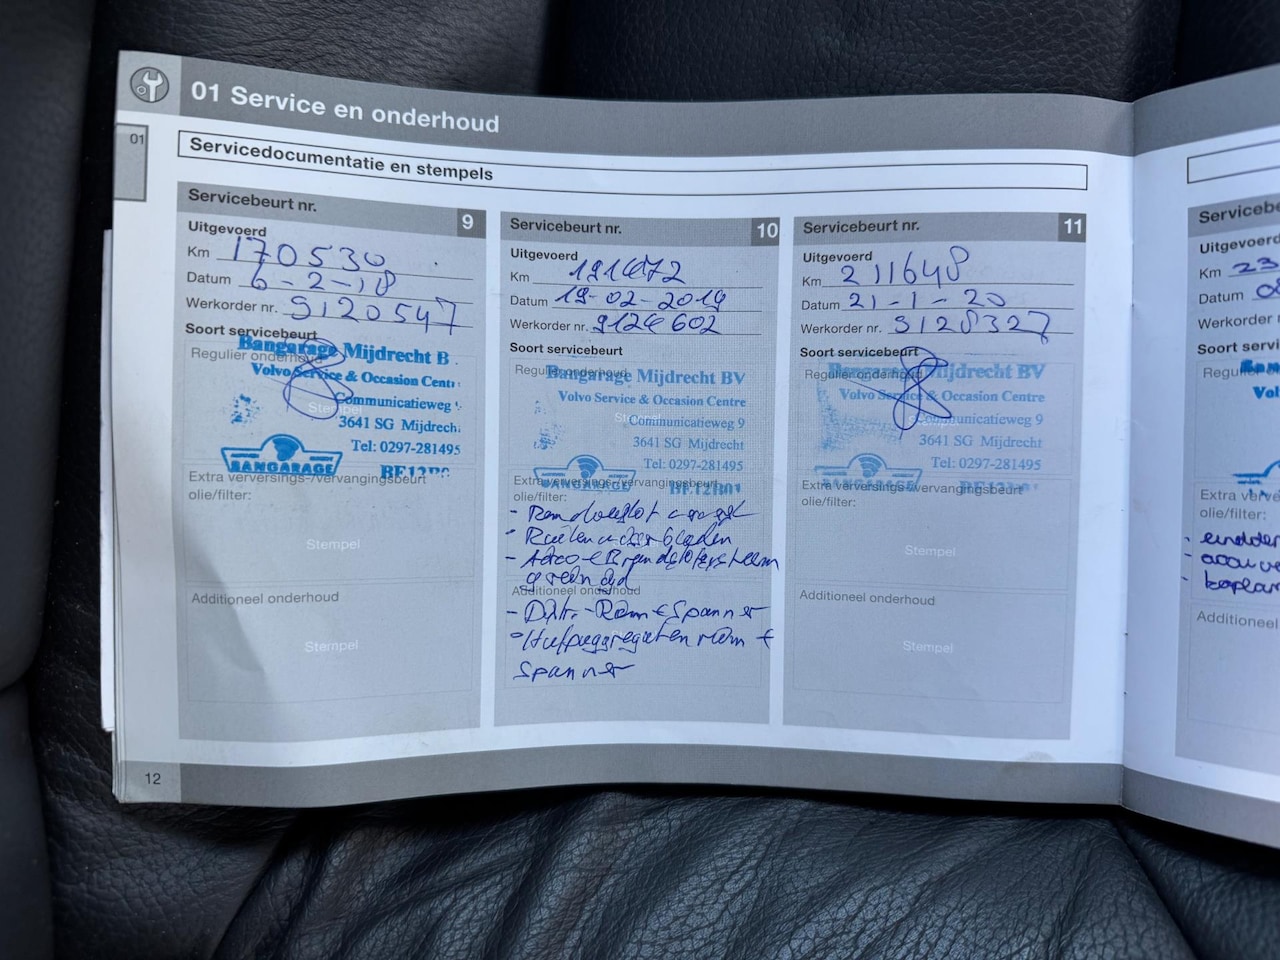 01 Service en onderhoud
01
Servicedocumentatie en stempels
Servicebeurt nr. 9
Uitgevoerd
Km 170530
Datum 6-2-18
Werkorder nr. 9120547
Soort servicebeurt
Regulier onderhoud
Bangarage Mijdrecht B
Volvo Service & Occasion Centr
Communicatieweg
Stempel
3641 SG Mijdrech
Tel: 0297-281495
BANGARAGE
Extra verversings-/vervangingsbeurt
olie/filter:
Stempel
Additioneel onderhoud
Stempel
Servicebeurt nr. 10
Uitgevoerd
Km
Datum 19-02-2019
Werkorder nr. 9124602
Soort servicebeurt
Regulier onderhoud
Bangarage Mijdrecht BV
Volvo Service & Occasion Centre
Stempel
Communicatieweg 9
3641 SG Mijdrecht
Tel: 0297-281495
BANGARAGE
Extra verversings-/vervangingsbeurt
olie/filter:
- Ruitenwisserbladen
- Airco + Brandstofsysteem
gereinigd
Additioneel onderhoud
- Distr.-Riem + Spanner
- Hulpaggregaten riem +
Spanner
Servicebeurt nr. 11
Uitgevoerd
Km 211648
Datum 21-1-20
Werkorder nr. 9128327
Soort servicebeurt
Regulier onderhoud
Bangarage Mijdrecht BV
Volvo Service & Occasion Centre
Communicatieweg 9
3641 SG Mijdrecht
Tel: 0297-281495
BANGARAGE
Extra verversings-/vervangingsbeurt
olie/filter:
Stempel
Additioneel onderhoud
Stempel
12
Servicebe
Uitgevoerd
Km 23
Datum
Werkorder
Soort servi
Regulie
Vol
Extra verve
olie/filter:
Additioneel